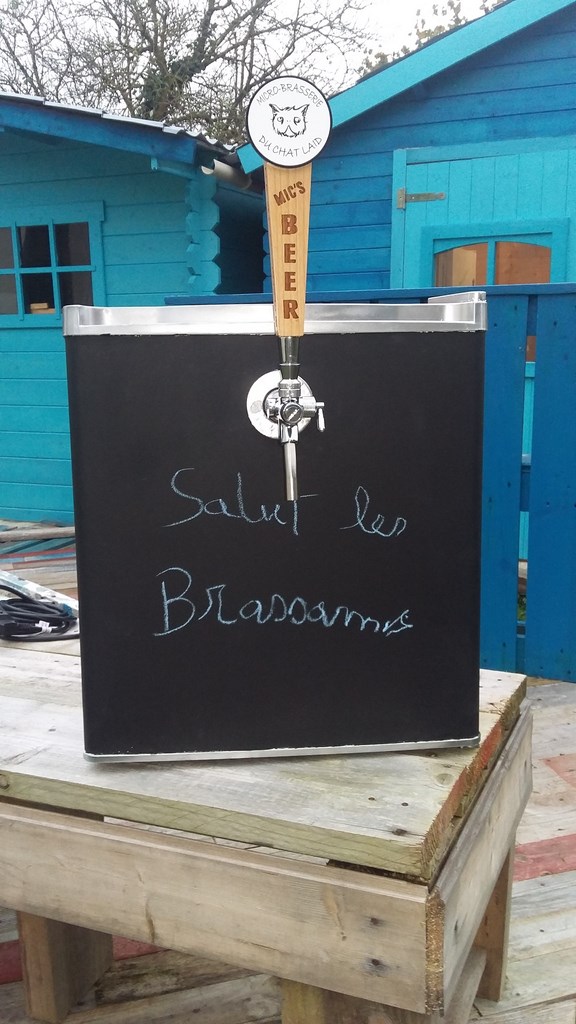 MICRO-BRASSERIE
DU CHAT LAID
MIC'S
BEER
Salut les
Brassamis